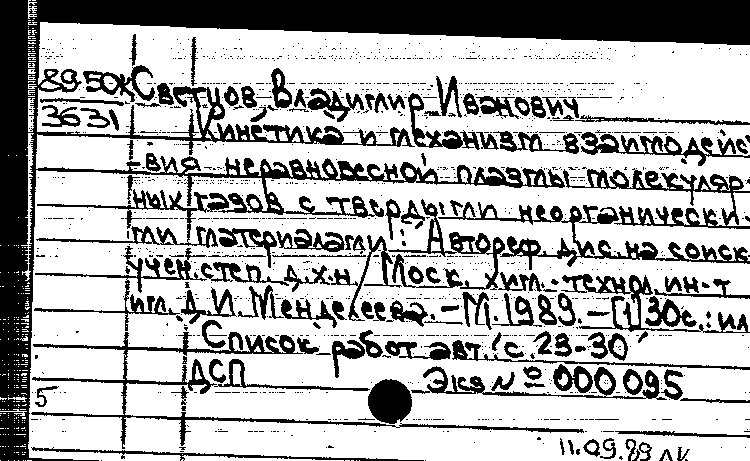 89-50К Светцов Владимир Иванович
3631 Кинетика и механизм взаимодейс
-вия неравновесной плазмы молекуляр-
ных газов с твердыми неорганически-
ми материалами: Автореф. дис. на соиск
учен. степ. д.х.н./ Моск. хим.-технол. ин-т
им. Д.И. Менделеева. - М. 1989. - [1] 30 с.: ил
Список работ авт.: с. 23-30
ДСП Экз № 000095
5
11.09.89 ЛК